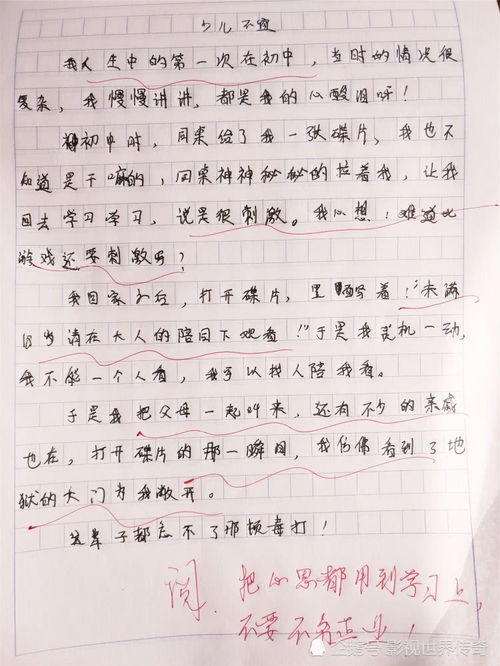 少儿不宜
我人生中的第一次在初中，当时的情况很
复杂，我慢慢讲讲，都是我的心酸泪呀！
初中时，同桌给了我一张碟片，我也不
知道是干嘛的，同桌神神秘秘的拉着我，让我
回去学习学习，说是很刺激。我心想！难道比
游戏还要刺激吗？
我回家以后，打开碟片，里面写着！"未满
18岁请在大人的陪同下观看！"于是我灵机一动，
我不能一个人看，我可以找人陪我看。
于是我把父母一起叫来，还有不少的亲戚
也在，打开碟片的那一瞬间，我仿佛看到了地
狱的大门为我敞开。
这辈子都忘不了那顿毒打！
阅．把心思都用到学习上，
不要不务正业！
企鹅号 影视世界传奇